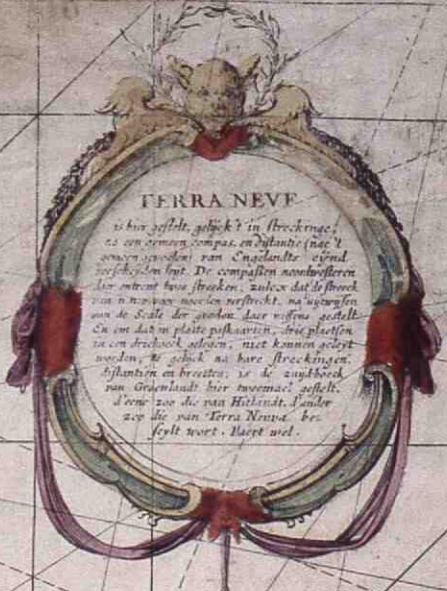 TERRA NEVF
is hier gestelt, gelijck 't in streckinge,
na een gemeen compas, en distantie (nae 't
gemeen gevoelen) van Engelandts eynd
verscheyden leyt. De compassen noordwesteren
hier entrent twee streeken, zulcx dat de streeck
van n noorden verstreckt, na uytwysen
van de Scale der graden daer neffens gestelt.
En om dat in platte paskaarten, drie plaetsen
in een driehoeck gelegen, niet konnen geleyt
worden, te gelijck na hare streckingen,
distantien en breetten, is de zuydthoeck
van Groenlandt hier tweemael gestelt,
d'eene zoo die van Hitlandt, d'ander
zoo die van Terra Neuva be-
seylt wort. Vaert wel.